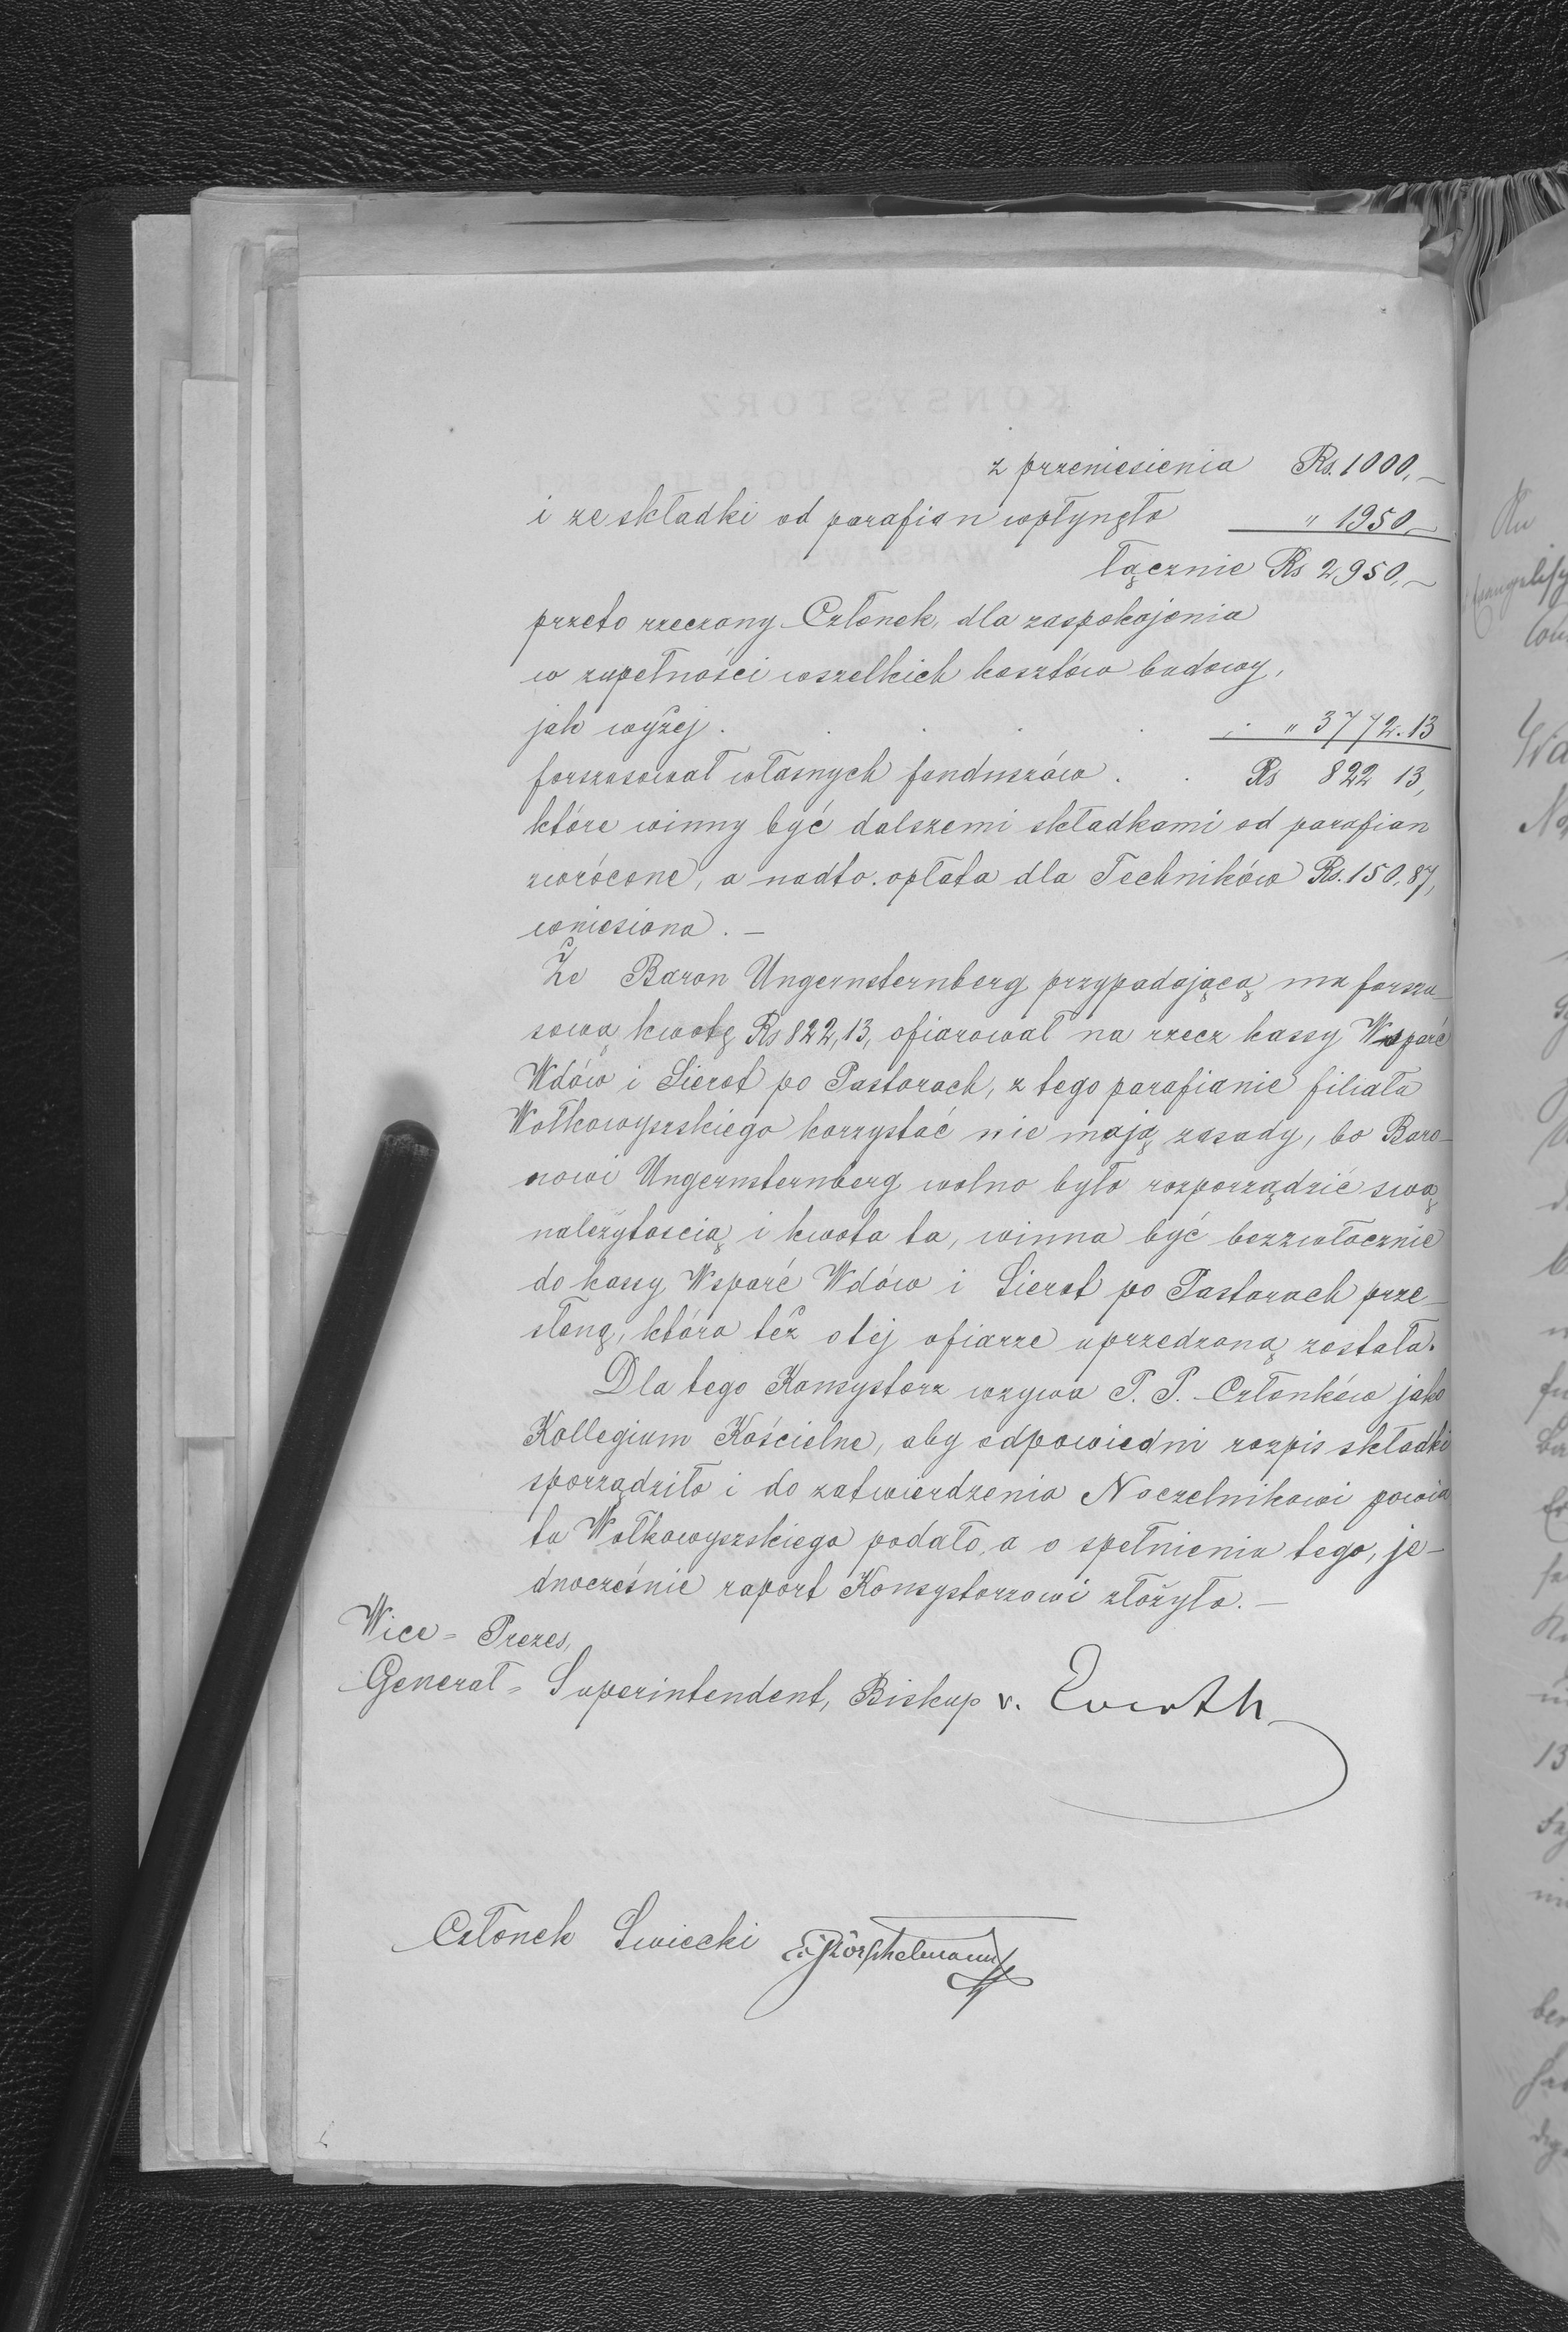 z przeniesienia Rs. 1000,—
i ze składki od parafian wpłynęło " 1950,—
łącznie Rs 2950,—
przeto rzeczony Członek, dla zaspokojenia
w zupełności wszelkich kosztów budowy,
jak wyżej . . . . . " 3772.13
forszusował własnych funduszów . . Rs 822 13,
które winny być dalszemi składkami od parafian
zwrócone, a nadto opłata dla Techników Rs. 150,87,
wniesiona. —
Że Baron Ungernsternberg przypadającą mu forszu-
sową kwotę Rs 822,13, ofiarował na rzecz kassy Wsparć
Wdów i Sierot po Pastorach, z tego parafianie filiału
Wołkowyszskiego korzystać nie mają zasady, bo Baro-
nowi Ungernsternberg wolno było rozporządzić swą
należytością i kwota ta, winna być bezzwłocznie
do kassy Wsparć Wdów i Sierot po Pastorach prze-
słaną, która też o tej ofiarze uprzedzoną została.
Dla tego Konsystorz wzywa P. P. Członków jako
Kollegium Kościelne, aby odpowiedni rozpis składki
sporządziło i do zatwierdzenia Naczelnikowi powia
tu Wołkowyszskiego podało, a o spełnieniu tego, je-
dnocześnie raport Konsystorzowi złożyło. —
Wice-Prezes,
Generał-Superintendent, Biskup v. Everth
Członek Świecki